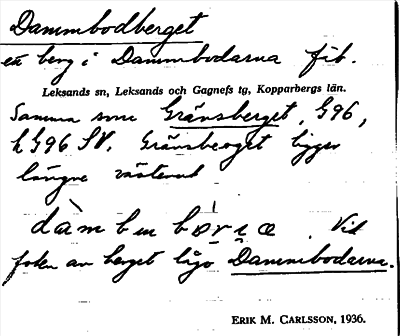 Dammbodberget
ett berg i Dammbodarna fäb.
Leksands sn, Leksands och Gagnefs tg, Kopparbergs län.
Samma som Gränsberget, G96,
h G96 SV. Gränsberget ligger
längre västerut
Vid
foten av berget ligg Dammbodarna.
ERIK M. CARLSSON, 1936.